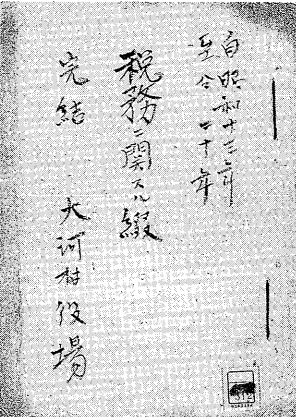 自昭和十三年
至仝二十年
税務ニ関スル綴
完結
大河村役場